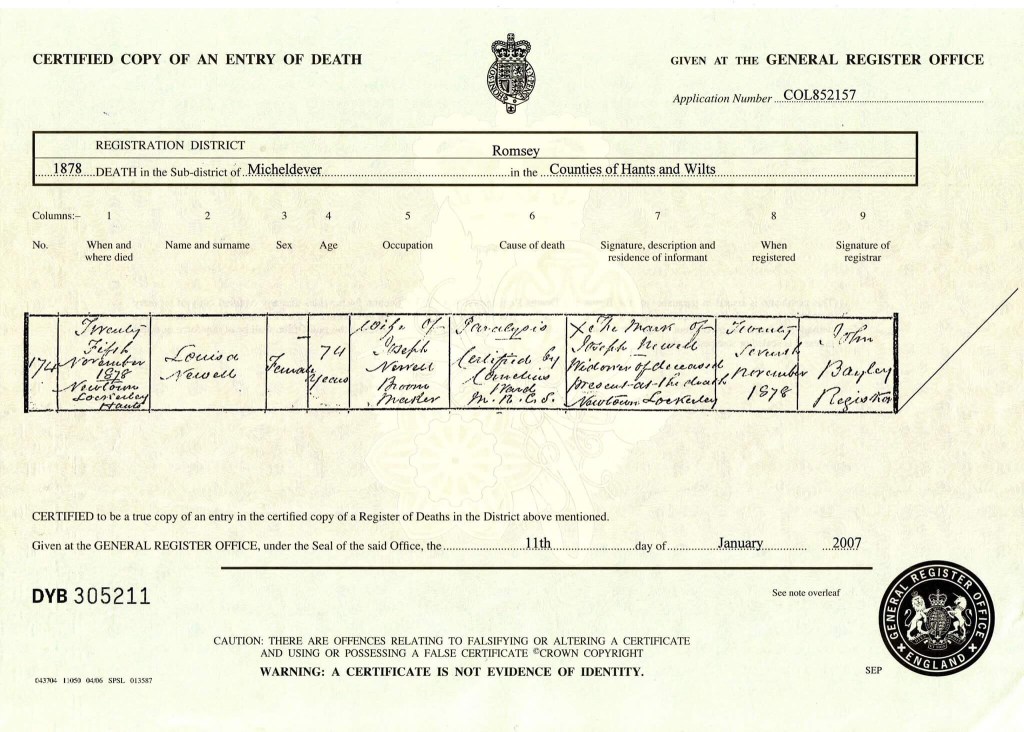 CERTIFIED COPY OF AN ENTRY OF DEATH
GIVEN AT THE GENERAL REGISTER OFFICE
Application Number COL852157
REGISTRATION DISTRICT Romsey
1878 DEATH in the Sub-district of Micheldever in the Counties of Hants and Wilts
Columns:- 1 2 3 4 5 6 7 8 9
No. When and where died Name and surname Sex Age Occupation Cause of death Signature, description and residence of informant When registered Signature of registrar
174
Twenty
Fifth
November
1878
Newtown
Lockerley
Hants
Louisa
Newell
Female
74
Years
Wife of
Joseph
Newell
Broom
Maker
Paralysis
Certified by
Cornelius
Ward
M.R.C.S.
X The mark of
Joseph Newell
Widower of deceased
present at the death
Newtown Lockerley
Twenty
Seventh
November
1878
John
Bayley
Registrar
CERTIFIED to be a true copy of an entry in the certified copy of a Register of Deaths in the District above mentioned.
Given at the GENERAL REGISTER OFFICE, under the Seal of the said Office, the 11th day of January 2007
DYB 305211
See note overleaf
GENERAL REGISTER OFFICE
ENGLAND
CAUTION: THERE ARE OFFENCES RELATING TO FALSIFYING OR ALTERING A CERTIFICATE
AND USING OR POSSESSING A FALSE CERTIFICATE ©CROWN COPYRIGHT
WARNING: A CERTIFICATE IS NOT EVIDENCE OF IDENTITY.
SEP
043704 11050 04/06 SPSL 013587